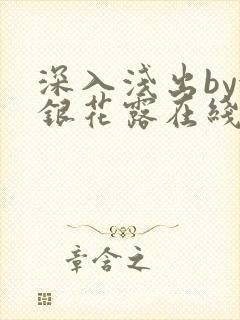 深入浅出by
银花露在线
章含之